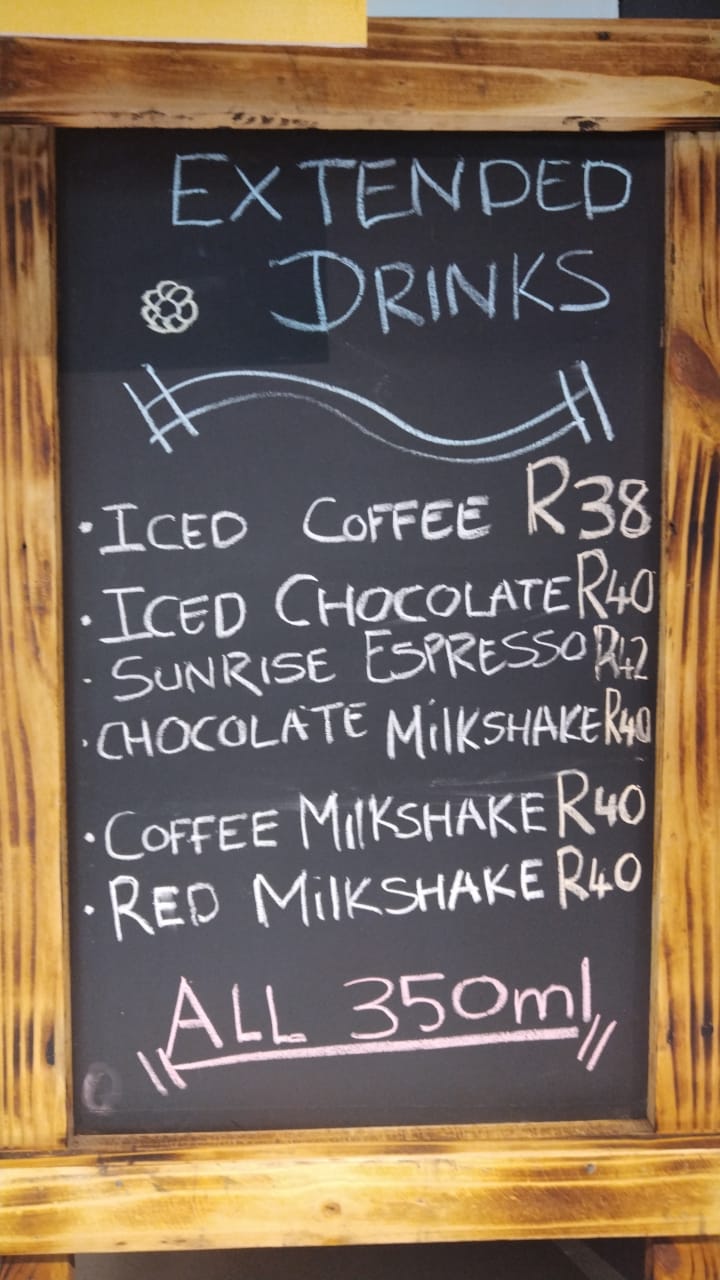 EXTENDED
DRINKS
· ICED COFFEE R38
· ICED CHOCOLATE R40
· SUNRISE ESPRESSO R42
· CHOCOLATE MilKSHAKE R40
· COFFEE MilKSHAKE R40
· RED MilKSHAKE R40
ALL 350ml